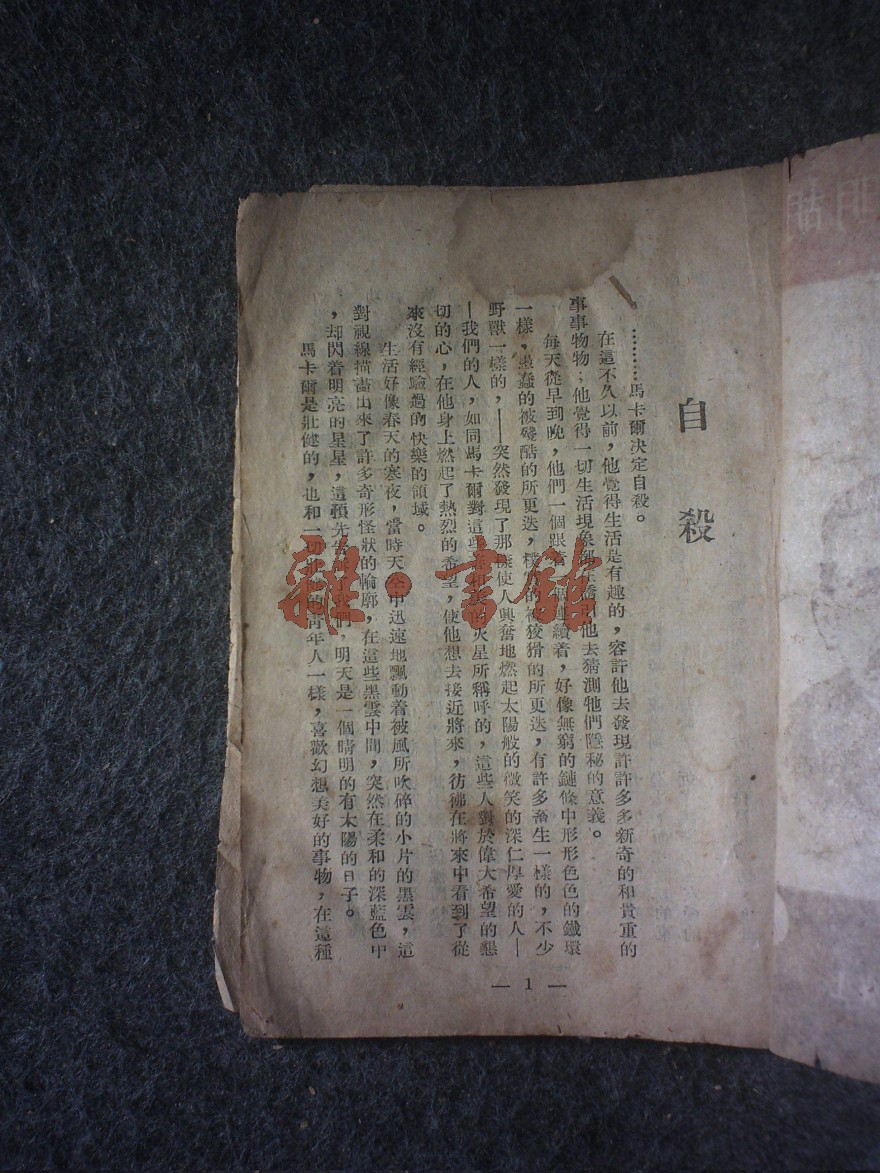 自殺
………馬卡爾決定自殺。
在這不久以前，他覺得生活是有趣的，容許他去發現許許多多新奇的和貴重的
事事物物；他覺得一切生活現象都在他去猜測牠們隱秘的意義。
每天從早到晚，他們一個跟連續着，好像無窮的鏈條中形形色色的鐵環
一樣，愚蠢的被殘酷的所更迭，樸的被狡猾的所更迭，有許多畜生一樣的，不少
野獸一樣的，——突然發現了那樣使人興奮地燃起太陽般的微笑的深仁厚愛的人—
—我們的人，如同馬卡爾對這些火星所稱呼的，這些人對於偉大希望的懇
切的心，在他身上燃起了熱烈的希望，使他想去接近將來，彷彿在將來中看到了從
來沒有經驗過的快樂的領域。
生活好像春天的寒夜，當時天空中迅速地飄動着被風所吹碎的小片的黑雲，這
對視線描畫出來了許多奇形怪狀的輪廓，在這些黑雲中間，突然在柔和的深藍色中
，却閃着明亮的星星，這預先告我們，明天是一個晴明的有太陽的日子。
馬卡爾是壯健的，也和一切的青年人一樣，喜歡幻想美好的事物，在這種
— 1 —
雜·書館